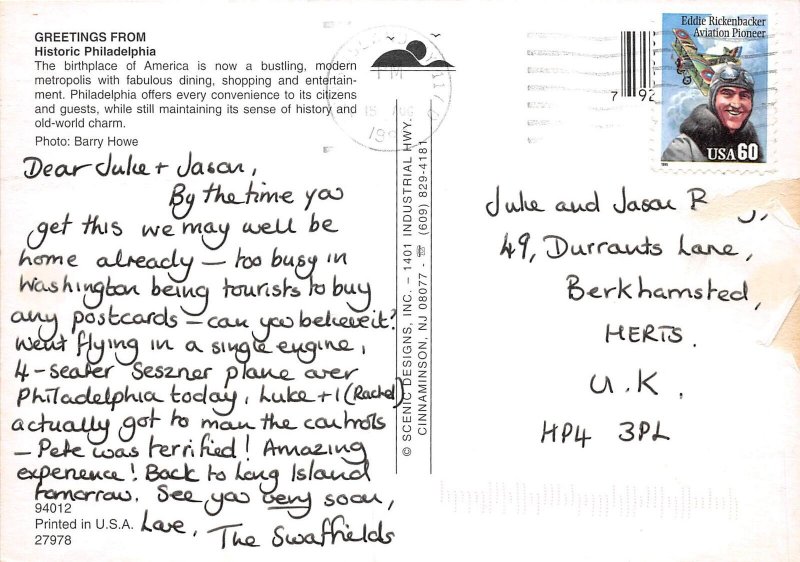 GREETINGS FROM
Historic Philadelphia
The birthplace of America is now a bustling, modern
metropolis with fabulous dining, shopping and entertain-
ment. Philadelphia offers every convenience to its citizens
and guests, while still maintaining its sense of history and
old-world charm.
Photo: Barry Howe
Dear Julie + Jason,
By the time you
get this we may well be
home already — too busy in
Washington being tourists to buy
any postcards — can you believe it?
Went flying in a single engine,
4-seater Seszner plane over
Philadelphia today, Luke + I (Rachel)
actually got to man the controls
— Pete was terrified! Amazing
experience! Back to Long Island
tomorrow. See you very soon,
Love, The Swaffields
94012
Printed in U.S.A.
27978
© SCENIC DESIGNS, INC. – 1401 INDUSTRIAL HWY.
CINNAMINSON, NJ 08077 - ☏ (609) 829-4181
PM
7 92
Eddie Rickenbacker
Aviation Pioneer
USA 60
1995
Julie and Jason R
49, Durrants Lane,
Berkhamsted,
HERTS.
U.K.
HP4 3PL